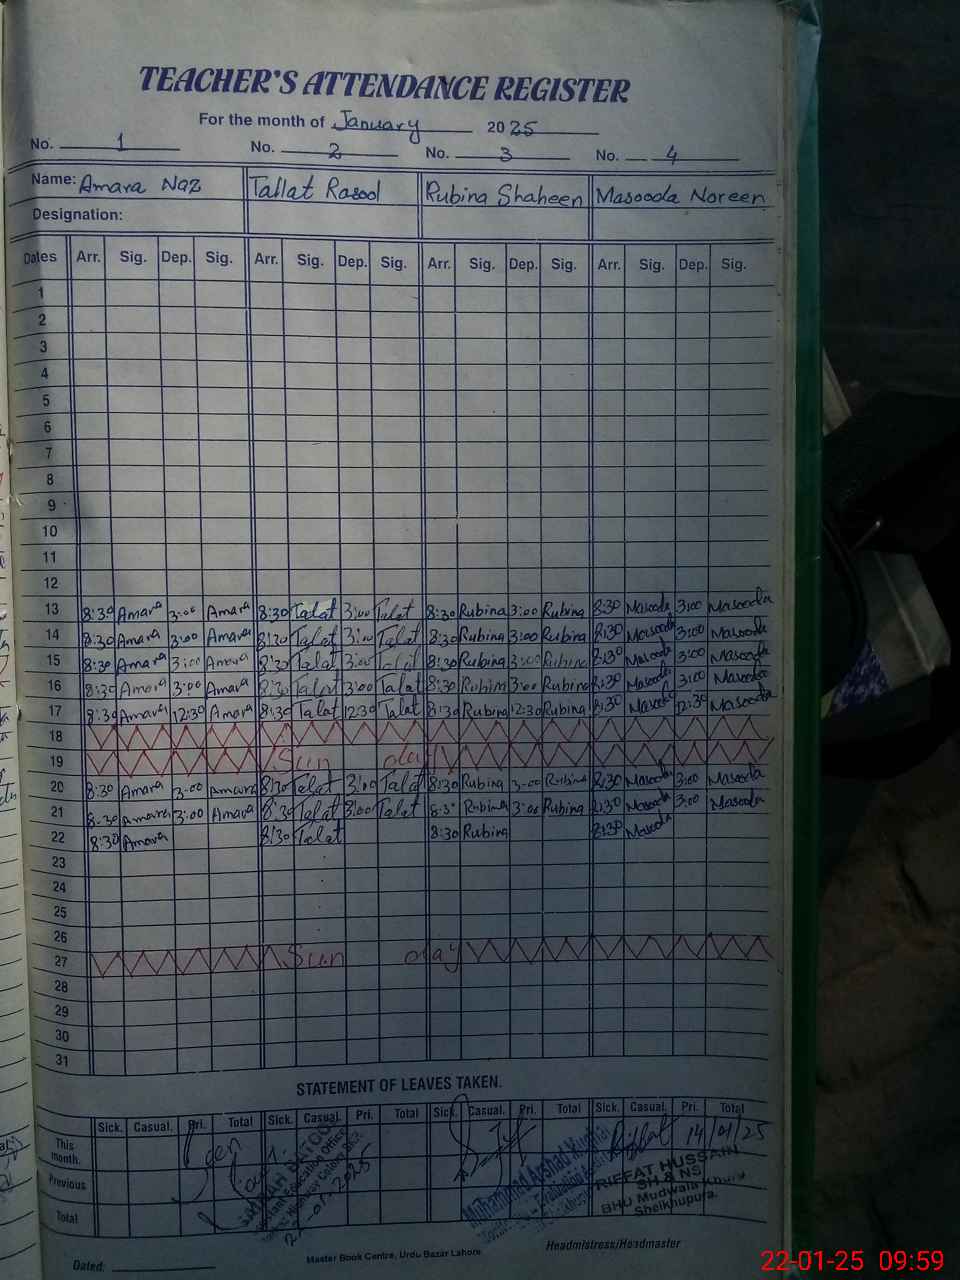 TEACHER'S ATTENDANCE REGISTER
For the month of January 2025
No. 1 No. 2 No. 3 No. 4
Name: Amara Naz Tallat Rasool Rubina Shaheen Masooda Noreen
Designation:
Dates Arr. Sig. Dep. Sig. Arr. Sig. Dep. Sig. Arr. Sig. Dep. Sig. Arr. Sig. Dep. Sig.
1
2
3
4
5
6
7
8
9
10
11
12
13 8:30 Amara 3:00 Amara 8:30 Talat 3:00 Talat 8:30 Rubina 3:00 Rubina 8:30 Masooda 3:00 Masooda
14 8:30 Amara 3:00 Amara 8:30 Talat 3:00 Talat 8:30 Rubina 3:00 Rubina 8:30 Masooda 3:00 Masooda
15 8:30 Amara 3:00 Amara 8:30 Talat 3:00 Talat 8:30 Rubina 3:00 Rubina 8:30 Masooda 3:00 Masooda
16 8:30 Amara 3:00 Amara 8:30 Talat 3:00 Talat 8:30 Rubina 3:00 Rubina 8:30 Masooda 3:00 Masooda
17 8:30 Amara 12:30 Amara 8:30 Talat 12:30 Talat 8:30 Rubina 12:30 Rubina 8:30 Masooda 12:30 Masooda
18
19 Sun day
20 8:30 Amara 3:00 Amara 8:30 Talat 3:00 Talat 8:30 Rubina 3:00 Rubina 8:30 Masooda 3:00 Masooda
21 8:30 Amara 3:00 Amara 8:30 Talat 3:00 Talat 8:3 Rubina 3:00 Rubina 8:30 Masooda 3:00 Masooda
22 8:30 Amara 8:30 Talat 8:30 Rubina 8:30 Masooda
23
24
25
26
27 Sun day
28
29
30
31
STATEMENT OF LEAVES TAKEN.
Sick. Casual. Pri. Total Sick. Casual. Pri. Total Sick. Casual. Pri. Total Sick. Casual. Pri. Total
This month. Riffat 14/01/25
Previous
Total
Muhammad Arshad
RIFFAT HUSSAIN
SH & NS
BHU Mudwala
Sheikhupura.
Education Officer
-01-2025
Dated:
Master Book Centre, Urdu Bazar Lahore
Headmistress/Headmaster
22-01-25 09:59